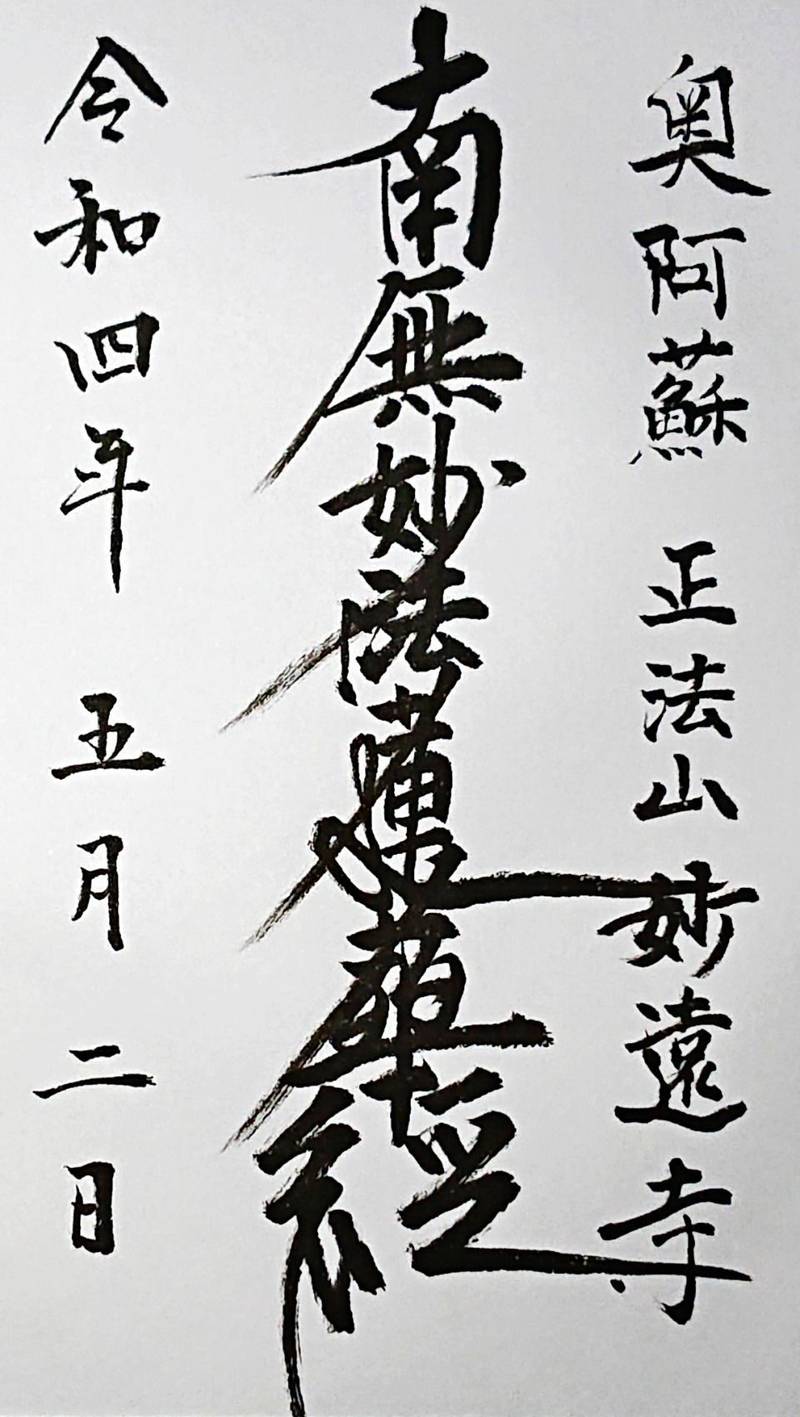 奥阿蘇 正法山妙遠寺
南無妙法蓮華経
令和四年 五月 二日